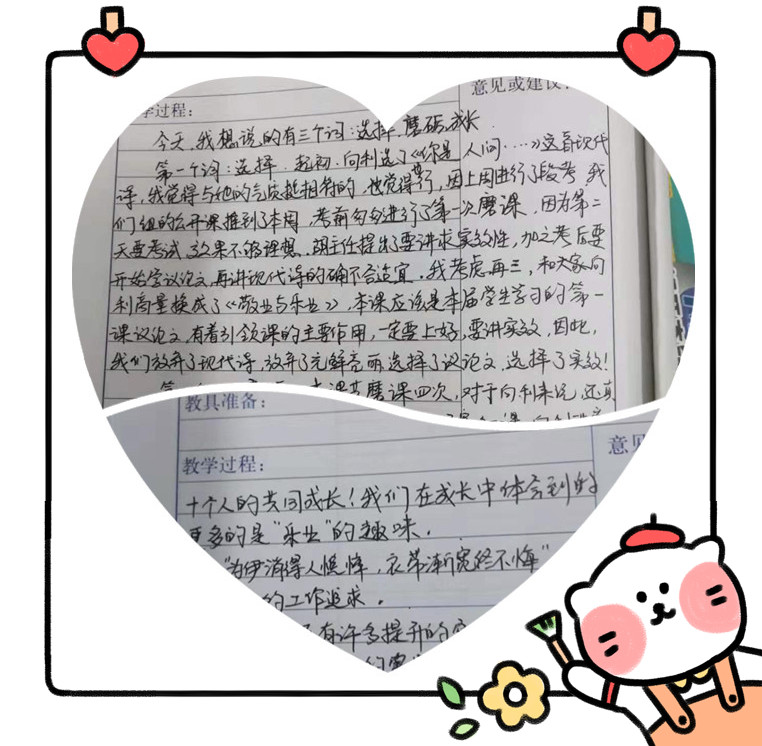 意见或建议:
学过程:
今天,我想说的有三个词:选择、磨砺、成长
第一个词:选择。起初,向利选了《你是人间……》这首现代
诗,我觉得与她的气质挺相符的,也觉得行,因上周进行了段考,我
们组的公开课推到了本周,考前匆匆进行了第一次磨课,因为第二
天要考试,效果不够理想,胡主任提出了要讲求实效性,加之考后要
开始学议论文,再讲现代诗的确不合适宜。我考虑再三,和大家向
利商量换成了《敬业与乐业》,本课应该是本届学生学习的第一
课议论文,有着引领课的主要作用,一定要上好,要讲实效,因此,
我们放弃了现代诗,放弃了光鲜亮丽,选择了议论文,选择了实效!
课共磨课四次,对于向利来说,还真
教具准备:
意见
教学过程:
十个人的共同成长!我们在成长中体会到的
更多的是“乐业”的趣味。
“为伊消得人憔悴,衣带渐宽终不悔”
的工作追求。
有许多提升的空